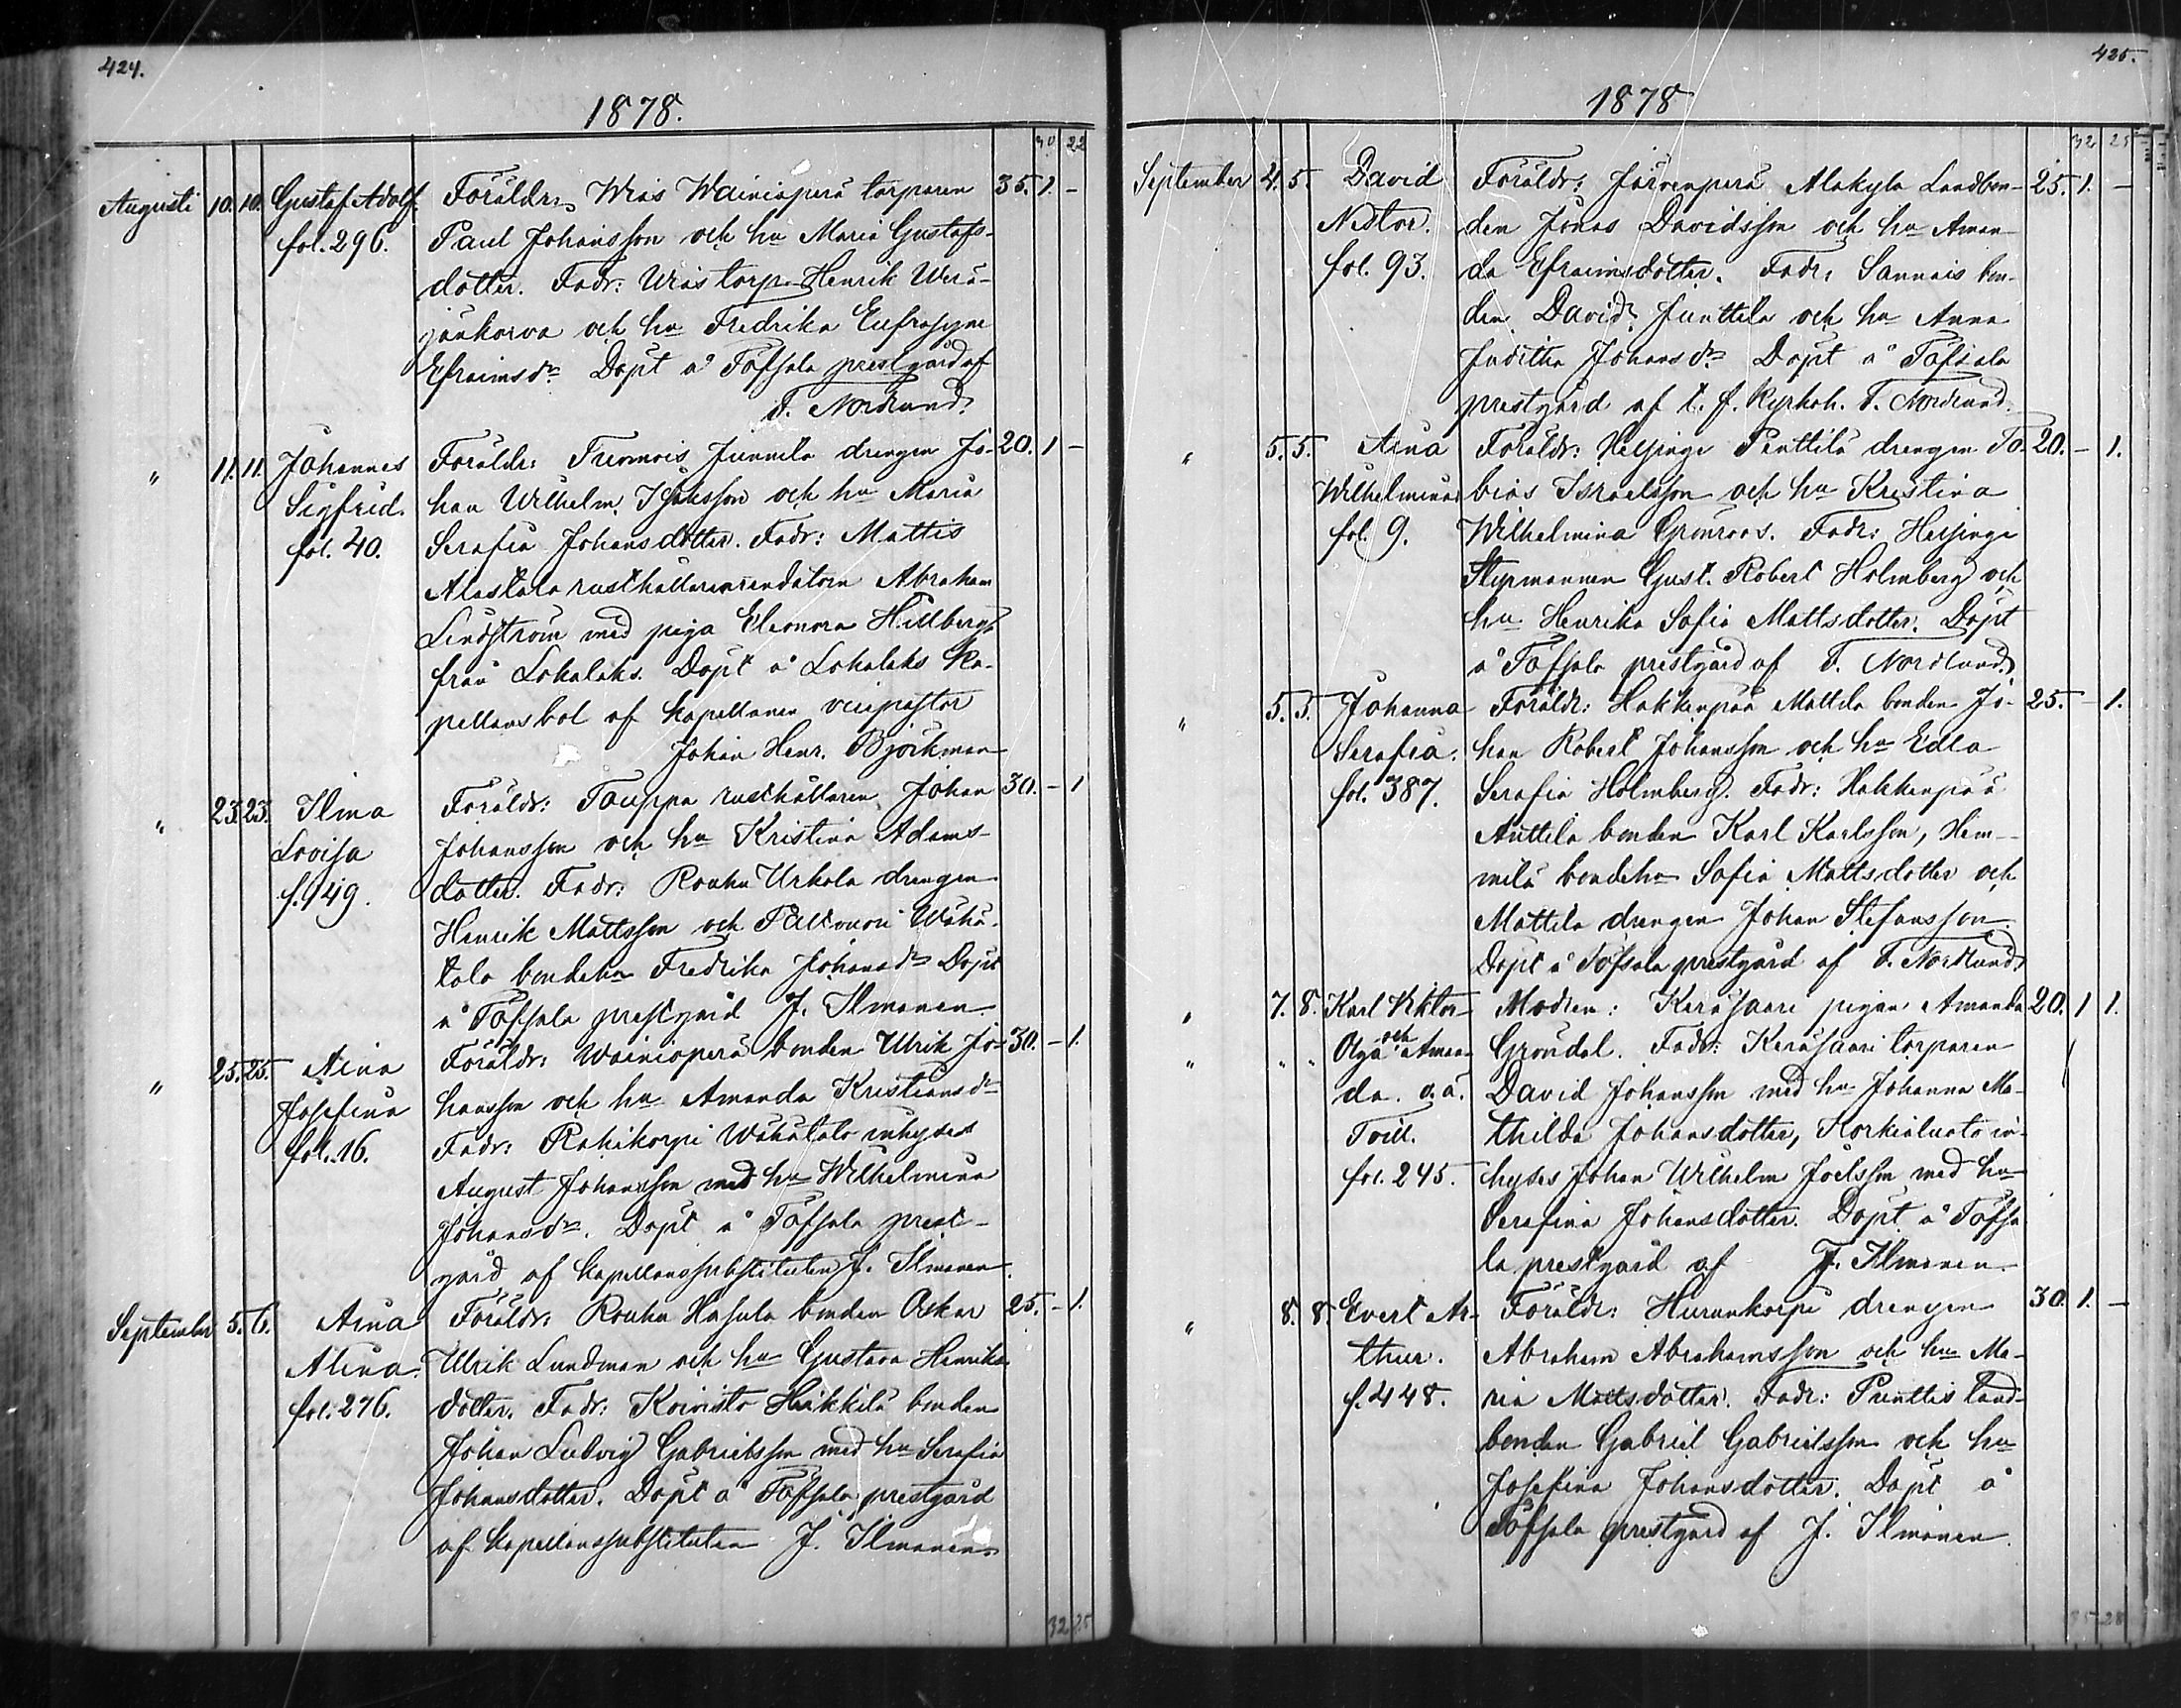 424.
1878.
30 22
Augusti 10. 10. Gustaf Adolf. Föräldr. Wias Wainiopera torparen 35. 1. -
fol. 296. Paul Johansson och hu Maria Gustafs-
dotter. Fadr: Wias torp. Henrik
och hu Fredrika Eufrosyne
Efraimsdr Döpt å Töfsala prestgård af
F. Nordlund.
" 11. 11. Johannes Föräldr: Junnila drengen Jo- 20. 1 -
Sigfrid. han Wilhelm Isaksson och hu Maria
fol. 40. Serafia Johansdotter. Fadr: Mattis
Alastalo rusthållarearrendatorn Abraham
Lindström med piga Eleonora Hillberg
från Lokalaks. Döpt å Lokalaks ka-
pellansbol af kapellanen vicepastor
Johan Henr. Björkman
" 23. 23. Ilma Föräldr: Tauppa rusthållaren Johan 30. - 1
Lovisa Johansson och hu Kristina Adams-
f. 149. dotter. Fadr: Rouhu Urkola drengen
Henrik Mattsson och Waha-
talo bondehu Fredrika Johansdr Döpt
å Töfsala prestgård J. Ilmanen
" 25. 25. Aina Föräldr: Wainiopera bonden Ulrik Jo- 30. - 1.
Josefina hansson och hu Amanda Kristiansdr
fol. 16. Fadr: Rahikorpi Wahatalo inhyses
August Johansson med hu Wilhelmina
Johansdr. Döpt å Töfsala prest-
gård af kapellanssubstituten J. Ilmanen.
September 5. 6. Aina Föräldr: Rouhu Hasula bonden Oskar 25. - 1.
Alina. Ulrik Lundman och hu Gustava Henriks
fol. 276. dotter. Fadr: Koivisto Heikkilä bonden
Johan Ludvig Gabrielsson med hu Serafia
Johansdotter. Döpt å Töfsala prestgård
af kapellanssubstituten J. Ilmanen
32 25
425.
1878
32 25
September 4. 5. David Föräldr: Järvenperä Alakylä Landbon- 25. 1. -
Nestor. den Jonas Davidsson och hu Aman-
fol. 93. da Efraimsdotter. Fadr: Sannais bon-
den David Junttila och hu Anna
Juditha Johansdr Döpt å Töfsala
prestgård af t. f. Kyrkoh. F. Nordlund.
" 5. 5. Aina Föräldr: Helsinge Penttilä drengen To- 20. - 1.
Wilhelmina bias Israelsson och hu Kristina
fol. 9. Wilhelmina Grönroos. Fadr: Helsinge
Stepmannen Gust. Robert Holmberg och
hu Henrika Sofia Mattsdotter. Döpt
å Töfsala prestgård af F. Nordlund.
" 5. 5. Johanna Föräldr: Hakkenpää Mattila bonden Jo- 25. - 1.
Serafia. han Robert Johansson och hu Edla
fol. 387. Serafia Holmberg. Fadr: Hakkenpää
Anttila bonden Karl Karlsson, Hem-
milä bondehu Sofia Mattsdotter och
Mattila drengen Johan Stefansson
Döpt å Töfsala prestgård af F. Nordlund.
" 7. 8. Karl Viktor Modren: Keräsaari pigan Amanda 20. 1 1.
" " " Olga och Aman- Gröndal. Fadr: Keräsaari torparen
da. o. ä. David Johansson med hu Johanna Ma-
Tvill. thilda Johansdotter, Korkialuoto in-
fol. 245. hyses Johan Wilhelm Joelsson med hu
Serafina Johansdotter. Döpt å Töfsa
la prestgård af J. Ilmanen
" 8. 8. Evert Ar- Föräldr: Hurunkorpi drengen 30. 1. -
thur. Abraham Abrahamsson och hu Ma-
f. 448. ria Mattsdotter. Fadr: Punttis land-
bonden Gabriel Gabrielsson och hu
Josefina Johansdotter. Döpt å
Töfsala prestgård af J. Ilmanen.
35 28